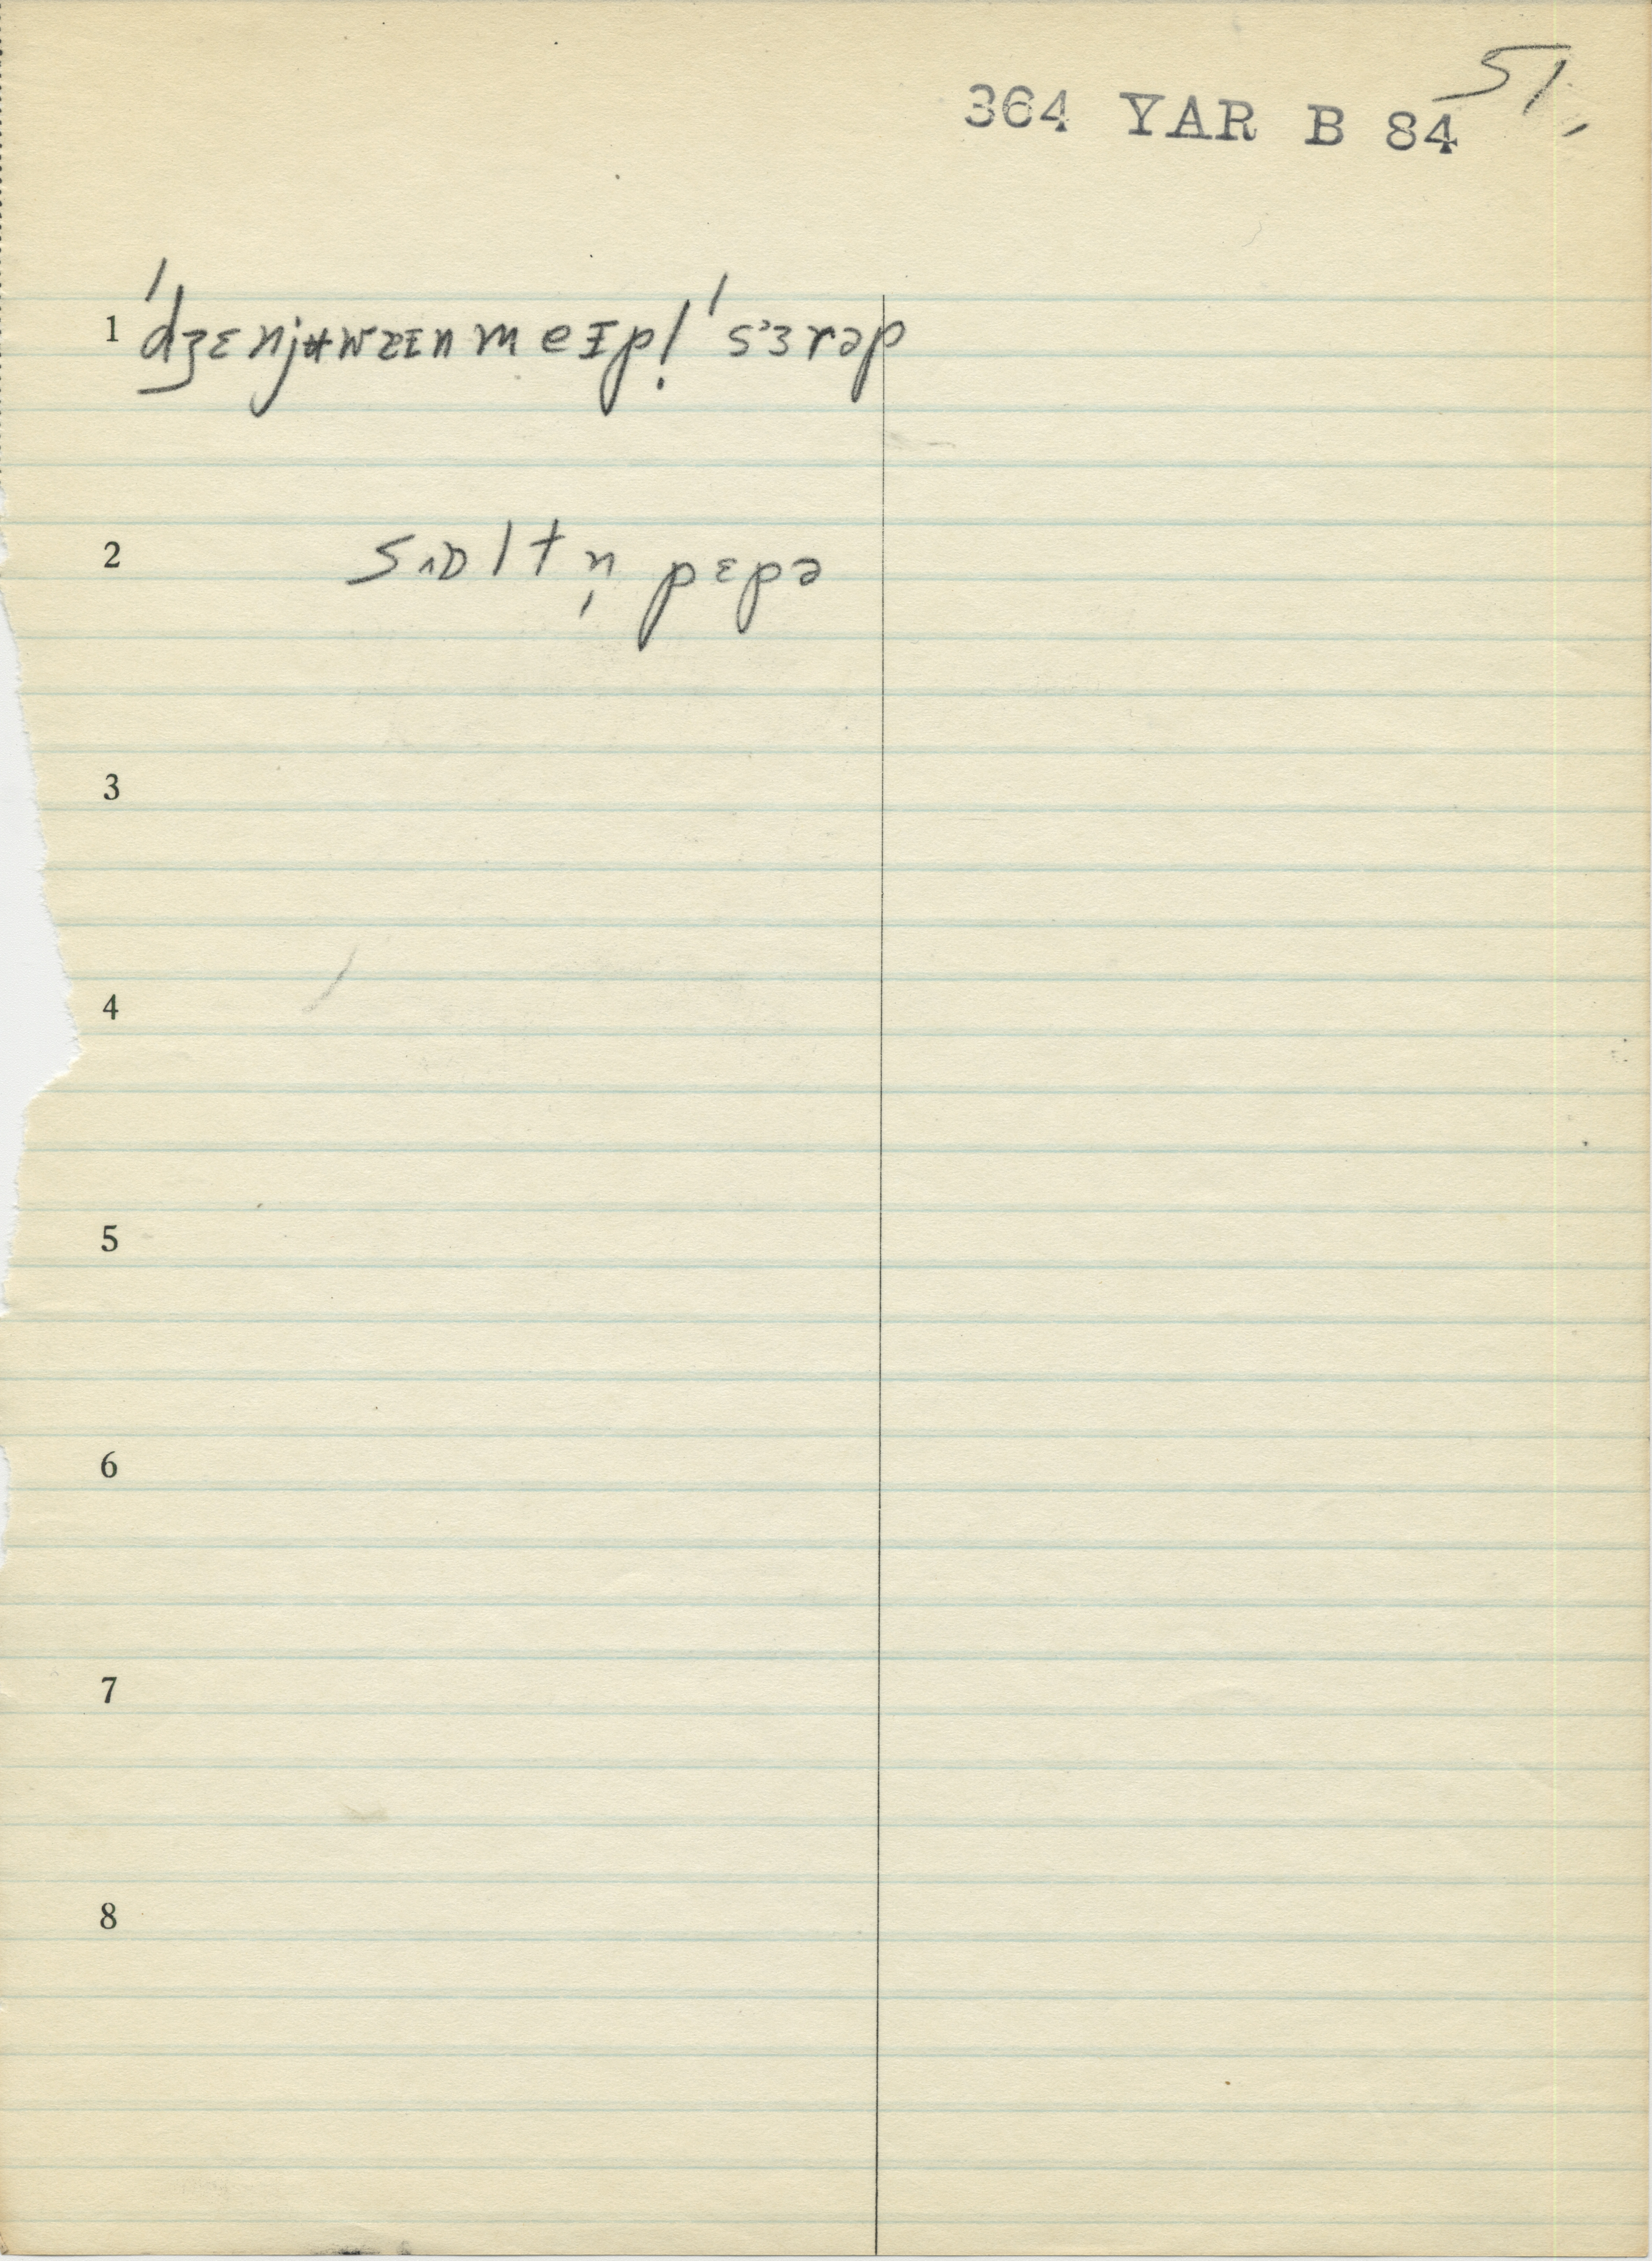 51,
364 YAR B 84
1 ˈdʒɛnjʉwɪzɪnmeɪpl̩ ˈsɜrəp
2 sɒltn̩ pɛpə
3
4
5
6
7
8